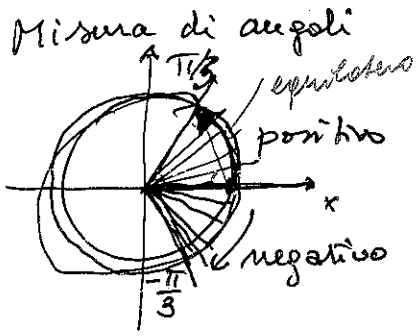 Misura di angoli
π/3
equilatero
positivo
x
negativo
-π/3